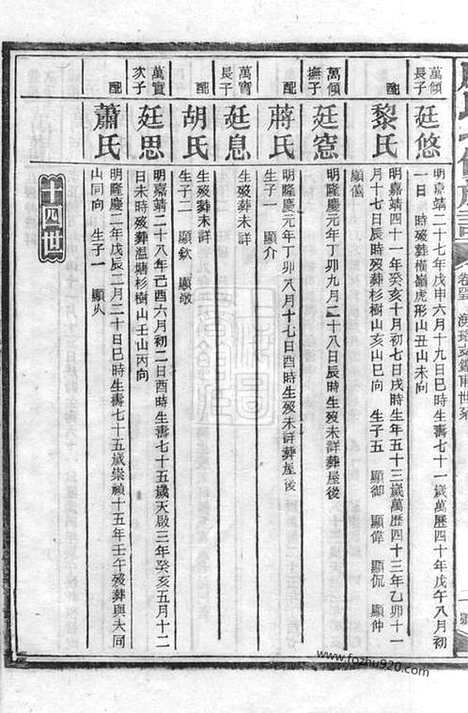 萬傾長子
廷悠
明嘉靖二十七年戊申六月十九日巳時生壽七十一歲萬歷四十年戊午八月初
一日 時歿葬橫嶺虎形山丑山未向
配
黎氏
明嘉靖四十一年癸亥十月初七日戌時生年五十三歲萬歷四十三年乙卯十一
月十七日辰時歿葬杉樹山亥山巳向 生子五 顯御 顯偉 顯侃 顯仲
顯儒
萬傾撫子
廷窓
明隆慶元年丁卯九月二十八日辰時生歿未詳葬屋後
配
蔣氏
明隆慶元年丁卯八月十七日酉時生歿未詳葬屋後
生子一 顯介
萬寶長子
廷息
生歿葬未詳
配
胡氏
生歿葬未詳
生子二 顯欽 顯墩
萬寶次子
廷思
明嘉靖二十八年己酉六月初二日酉時生壽七十五歲天啟三年癸亥五月十二
日未時歿葬溫塘杉樹山壬山丙向
配
蕭氏
明隆慶二年戊辰二月二十日巳時生壽七十五歲崇禎十五年壬午歿葬與夫同
山同向 生子一 顯
十四世
www.fozhu920.com